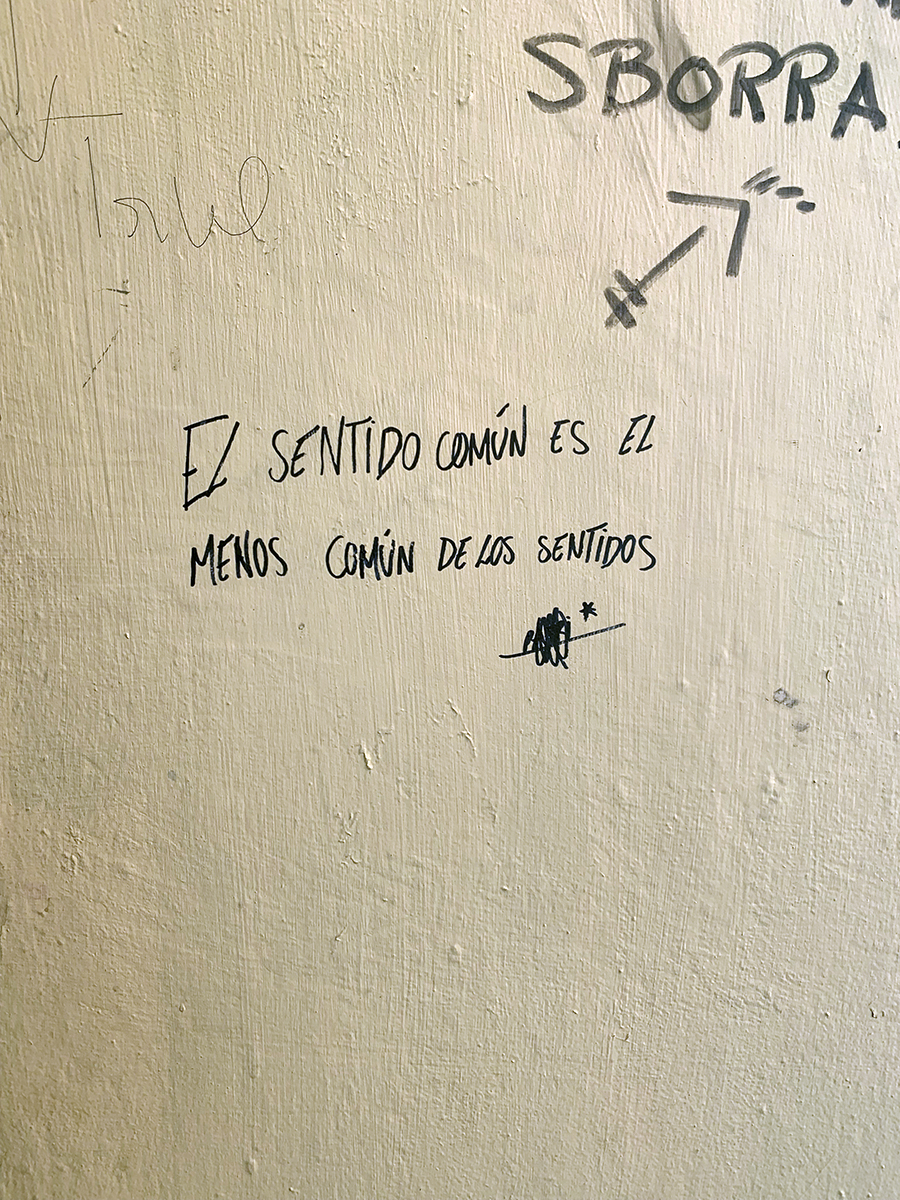 SBORRA
El SENTIDO COMÚN ES EL
MENOS COMÚN DE LOS SENTIDOS